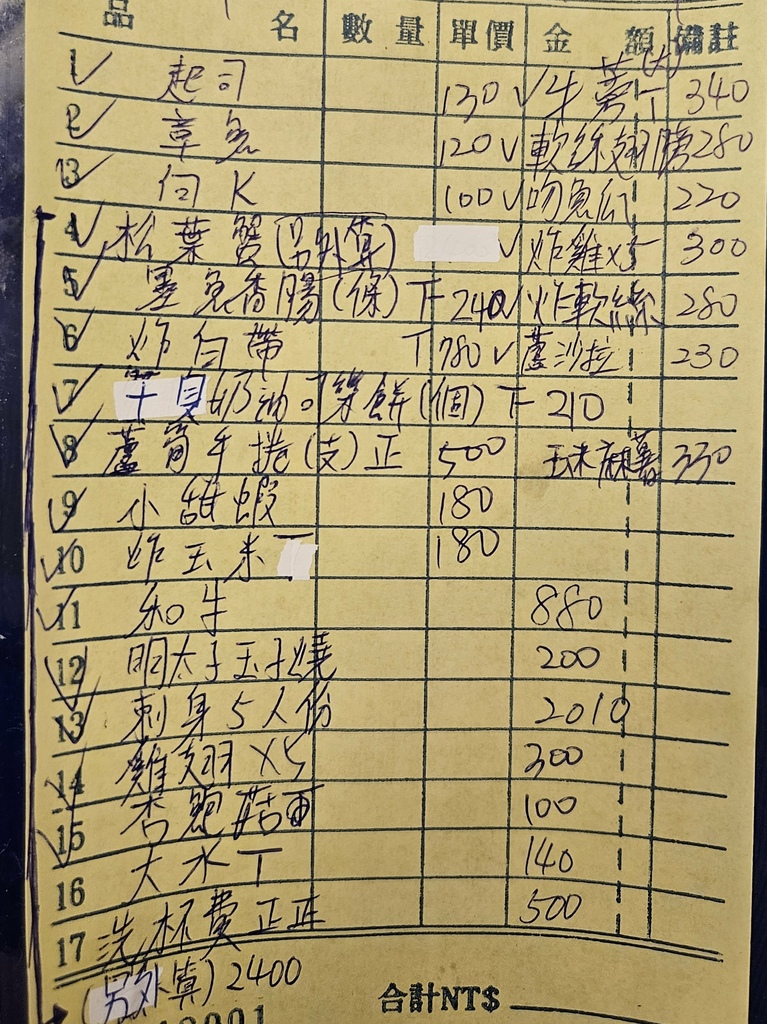 品 名 數量 單價 金額 備註
1 起司 130 牛蒡(大)T 340
2 章魚 120 軟絲翅腸 280
3 何K 100 吻魚瓜 220
4 松葉蟹(另外算) 炸雞x5 300
5 墨魚香腸(條)下 240 炸軟絲 280
6 炸白帶T 780 蘆沙拉 230
7 奶油 餅(個)下 210
8 蘆筍牛捲(支)正 500 玉米麻薯 330
9 小甜蝦 180
10 炸玉米 180
11 和牛 880
12 明太子玉子燒 200
13 刺身5人份 2010
14 雞翅x5 300
15 杏鮑菇 100
16 大水T 140
17 洗杯費正正 500
(另外算)2400
合計NT$